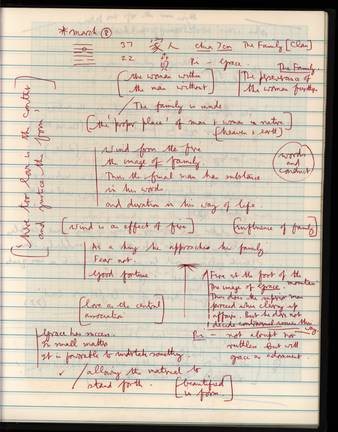 * march ⑧
37 家人 Chia Jen The Family [Clan]
22 賁 Pi - Grace.
[the woman within
the man without]
The Family.
The perseverance of
the woman furthers
The family is inside
[the 'proper place' of man & woman in nature
[heaven & earth]
Wind from the fire
the image of family
Thus the final man has substance
in his words
and duration in his way of life
words
and
conduct
[Wind is an effect of fire]
[influence of family]
As a king he approaches his family
Fear not.
Good fortune
[love as the central
association]
Fire at the foot of the
mountain
The image of Grace.
Thus does the superior man
proceed when clearing up
affairs. But he does not
decide controversial issues this way
Pi - not abrupt nor
ruthless. But will
grace as adornment
Grace has success.
In small matters
it is favorable to undertake something.
allowing the material to
stand forth.
[beautified
in form]
and practice the form,]